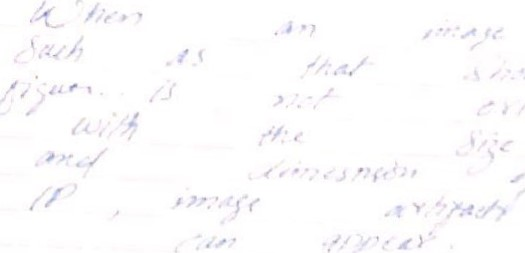 When an image
Such as that sho
figur... is not
with the Size
and dimesnson
IP , image artifacts
can appear.